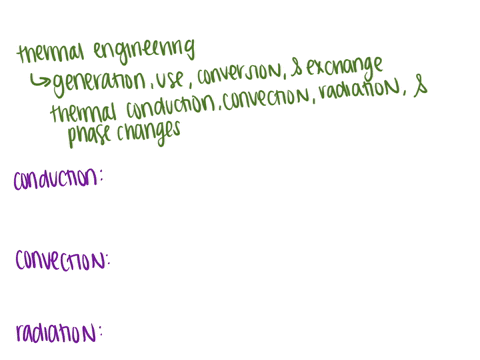 thermal engineering
↳ generation, use, conversion, & exchange
thermal conduction, convection, radiation, &
phase changes
conduction:
convection:
radiation: